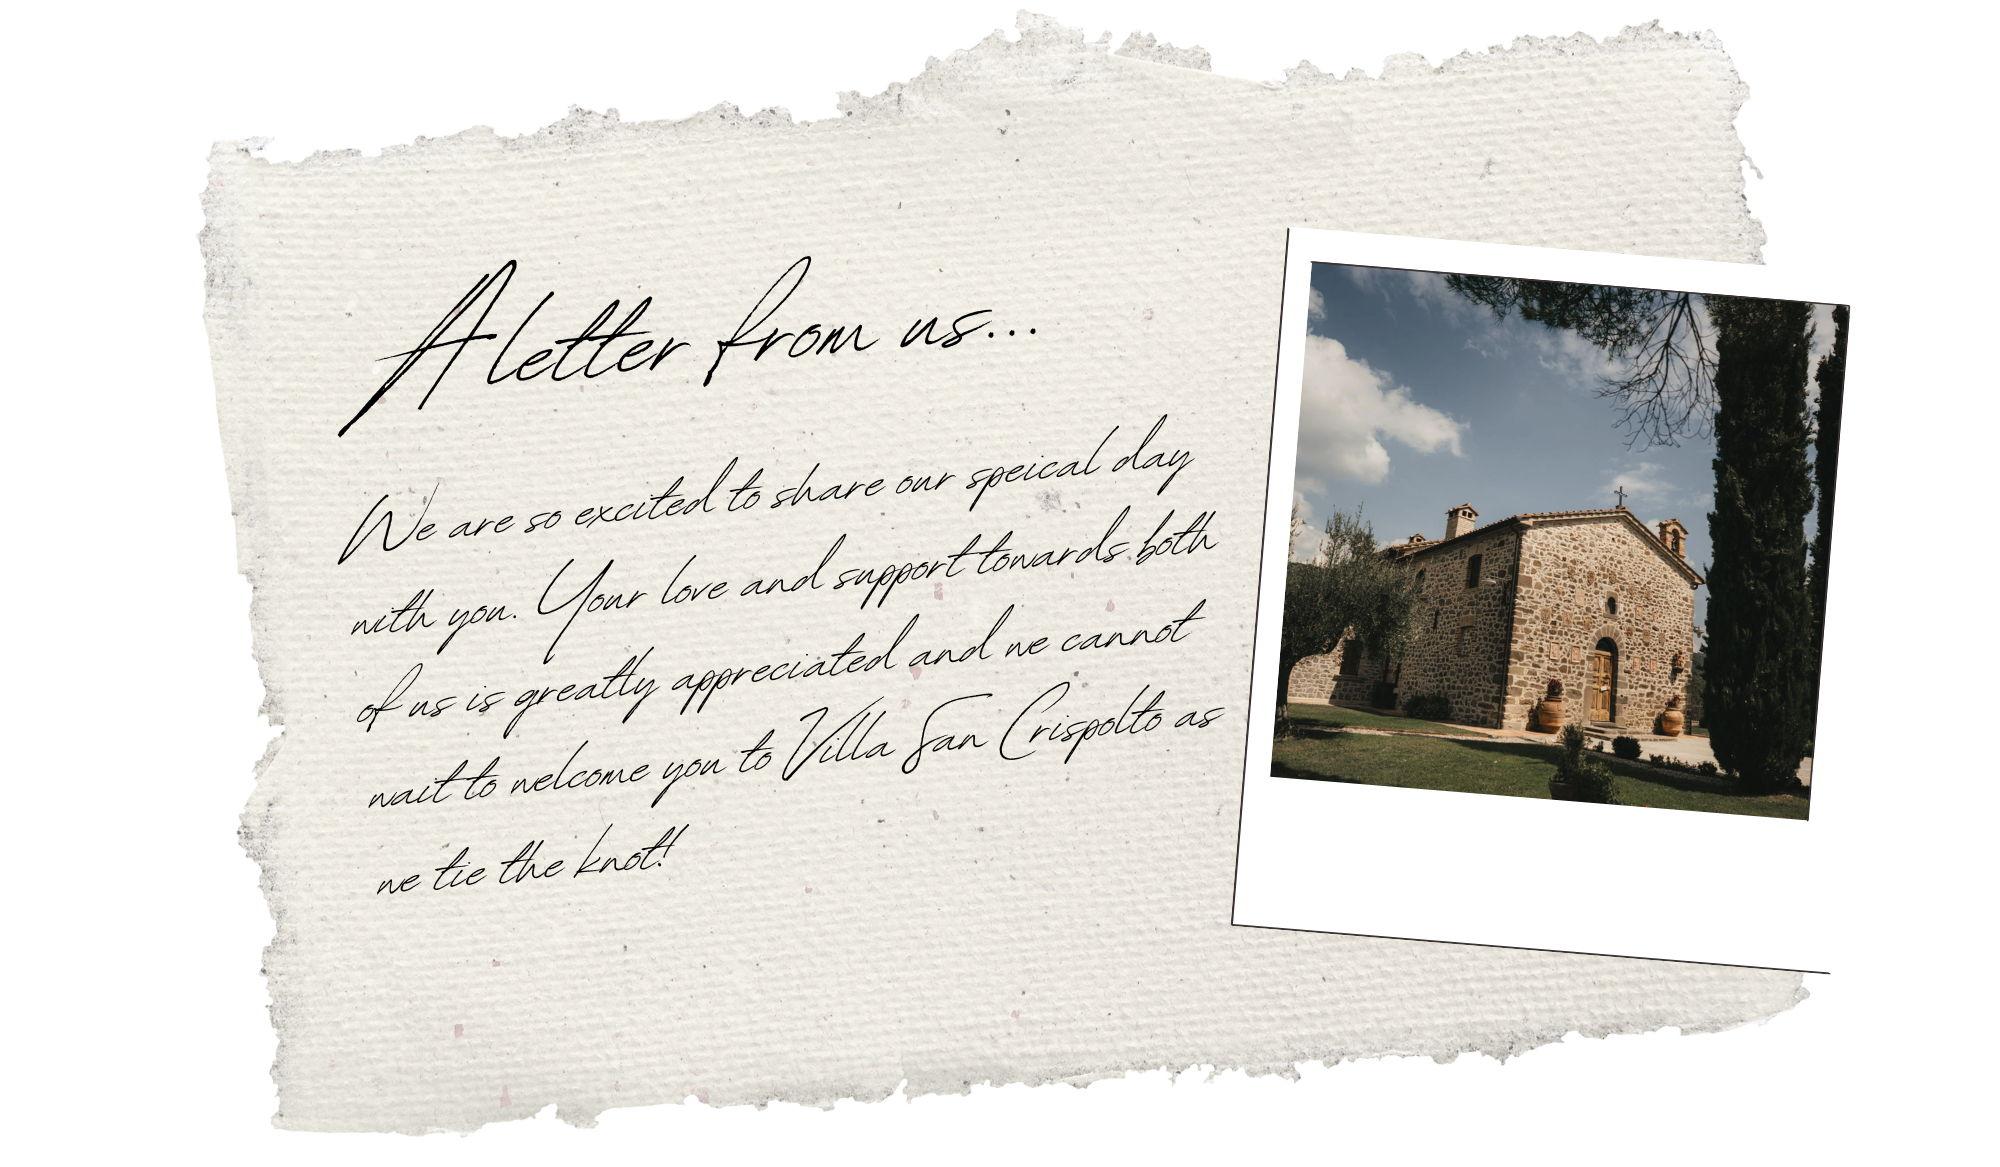 A letter from us...
We are so excited to share our speical day
with you. Your love and support towards both
of us is greatly appreciated and we cannot
wait to welcome you to Villa San Crispolto as
we tie the knot!